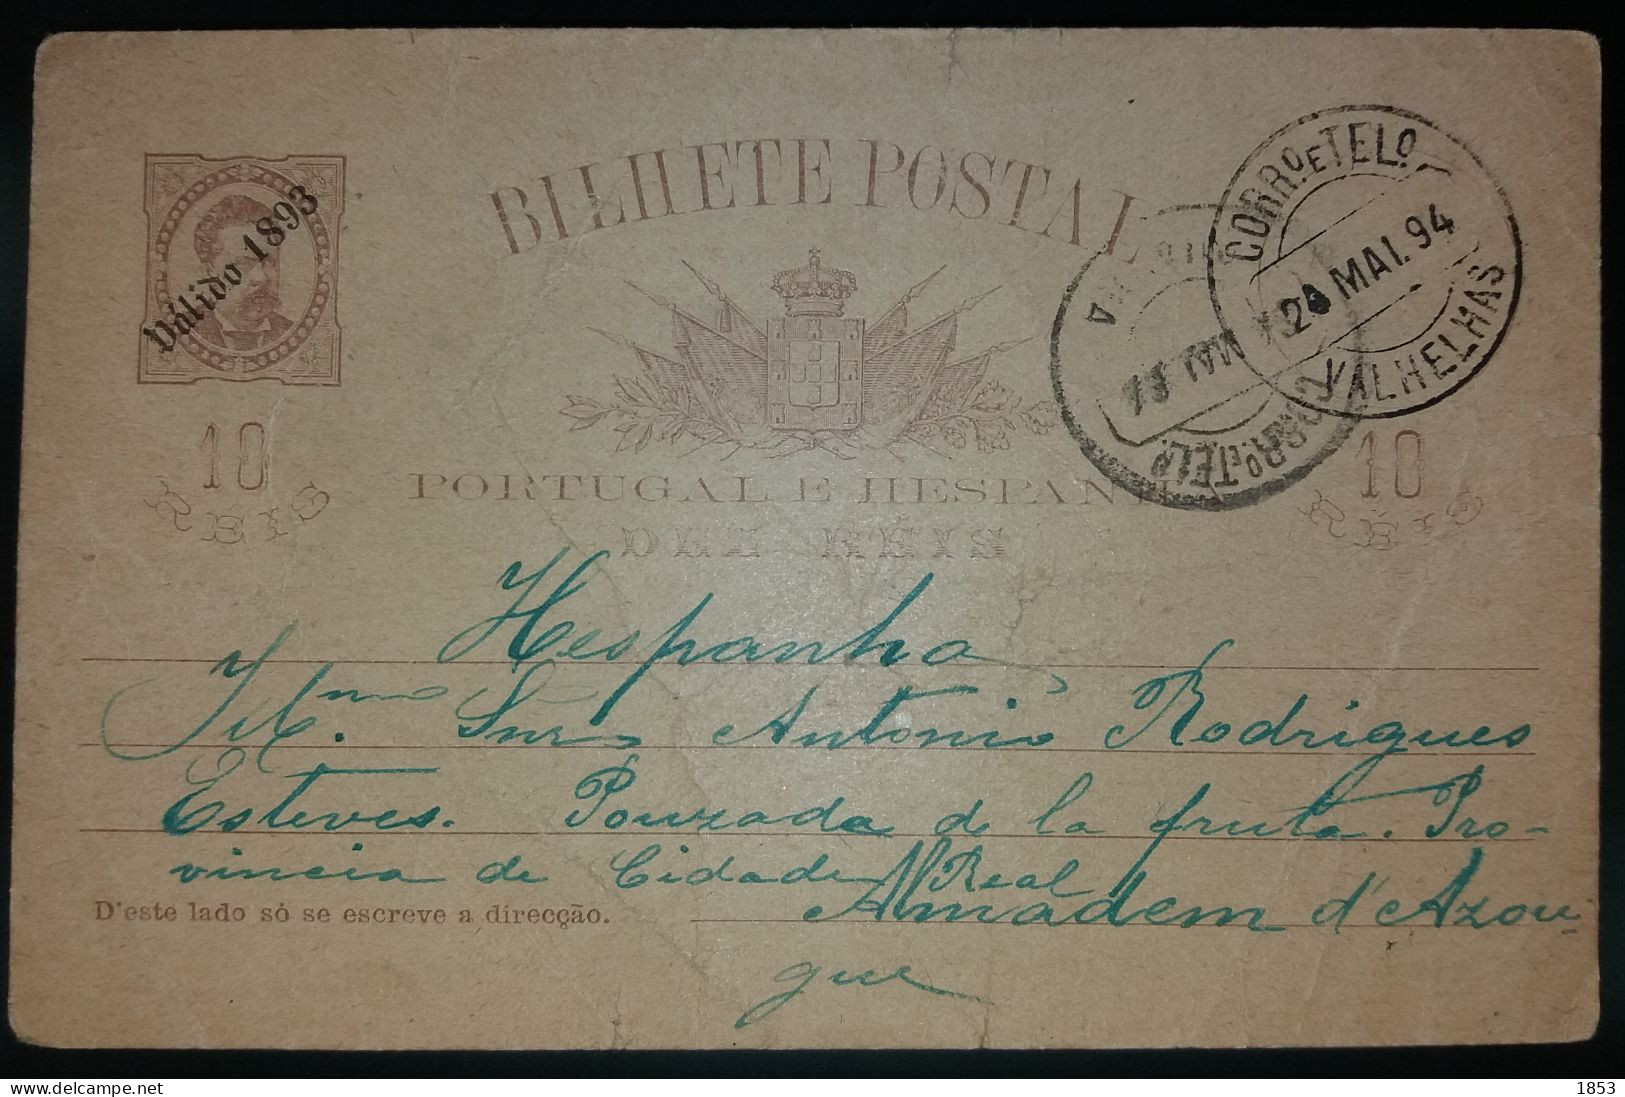 BILHETE POSTAL
Válido 1893
CORRO. E TELO.
20 MAI. 94
VALHELHAS
MAI
CORRO. E TELO.
10
RÉIS
PORTUGAL E HESPAN
DEZ RÉIS
10
RÉIS
Hespanha
Snr Antonio Rodrigues
Esteves. Pouzada de la fruta. Pro-
vincia de Cidade Real
Almadem d'Azou-
gue
D'este lado só se escreve a direcção.
1853